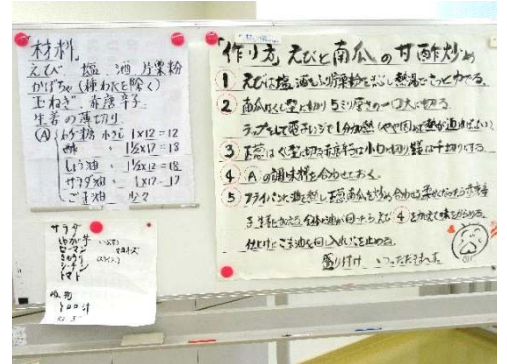 材料
えび 塩 酒 片栗粉
かぼちゃ(種わたを除く)
玉ねぎ 赤唐辛子
生姜の薄切り
(A) 砂糖 小さじ 1×12=12
酢 1½×12=18
しょう油 1½×12=18
サラダ油 1×12=12
ごま油 少々
サラダ
じゃが芋
ピーマン
きゅうり
シーチキン
トマト
作り方 えびと南瓜の甘酢炒め
1 えびは塩、酒をふり片栗粉をまぶし熱湯でさっとゆでる。
2 南瓜はくし型に切り5ミリ厚さの一口大に切る。
ラップをして電子レンジで1分加熱
3 玉葱はくし型に切る赤唐辛子は小口切り生姜は千切りにする
4 Aの調味料を合わせておく。
5 フライパンに油を熱し玉葱南瓜を炒め合わせる
仕上げにごま油を回し入れ火を止める。
盛り付け